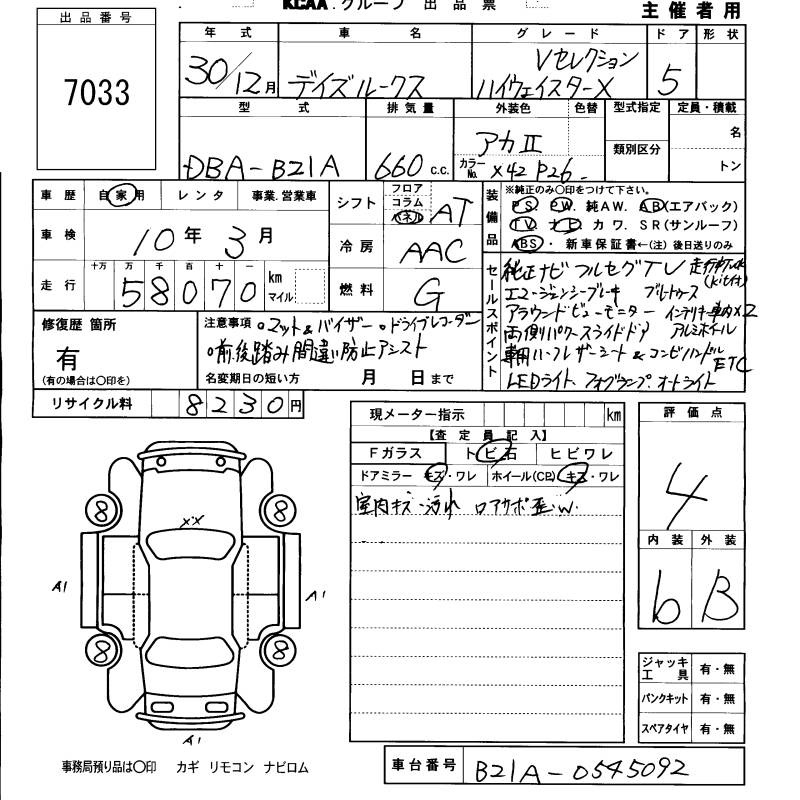 KCAA.グループ 出品票
主催者用
出品番号
7033
年式 車名 グレード ドア 形状
30/12月 デイズルークス Vセレクション ハイウェイスターX 5
型式 排気量 外装色 色替 型式指定 定員・積載
DBA-B21A 660 c.c. アカII 名
類別区分
カラーNo. X42 P26 トン
車歴 自家用 レンタ 事業.営業車
車検 10年 3月
走行 十万 万 千 百 十 一
58070 km マイル
シフト フロア コラム パネル AT
冷房 AAC
燃料 G
装備品
※純正のみ〇印をつけて下さい。
PS PW. 純AW. AB(エアバック)
TV ナビ カワ. SR(サンルーフ)
ABS・ 新車保証書←(注)後日送りのみ
セールスポイント
純正ナビ フルセグTV
エマージェンシーブレーキ ブルートゥース
アラウンドビューモニター
両側パワースライドドア アルミホイール
ハーフレザーシート&コンビハンドル
ETC
LEDライト、フォグランプ、オートライト
修復歴 箇所
有
(有の場合は〇印を)
注意事項 ○マット&バイザー ○ドライブレコーダー
○前後踏み間違い防止アシスト
名変期日の短い方 月 日まで
リサイクル料 8230円
現メーター指示 km
【査定員記入】
Fガラス トビ石 ヒビワレ
ドアミラー キズ・ワレ ホイール(CP) キズ・ワレ
室内キズ・汚れ ロアサポ歪.W.
評価点
4
内装 外装
b B
XX
8 8
A1 A1
8 8
A1
ジャッキ工具 有・無
パンクキット 有・無
スペアタイヤ 有・無
事務局預り品は〇印 カギ リモコン ナビロム
車台番号 B21A-0545092